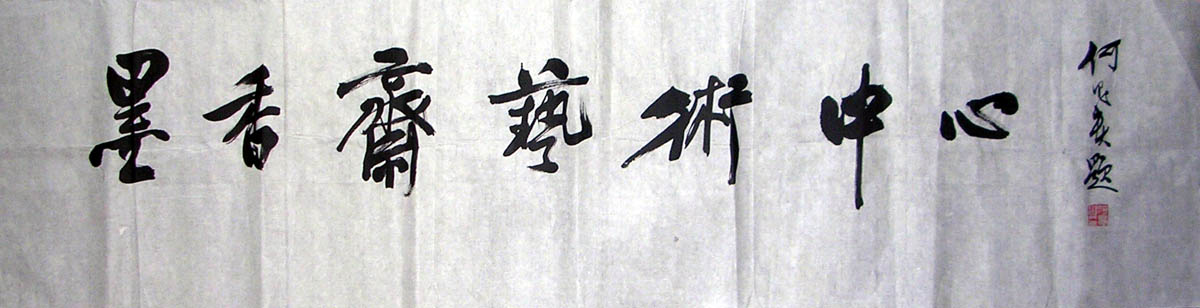 墨香齋藝術中心
何家英題